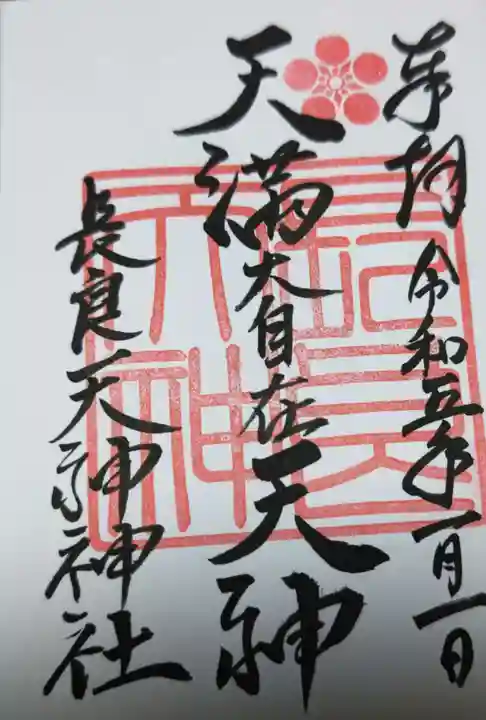 奉拝 令和五年一月一日
天満大自在天神
長良天神神社
長良天神